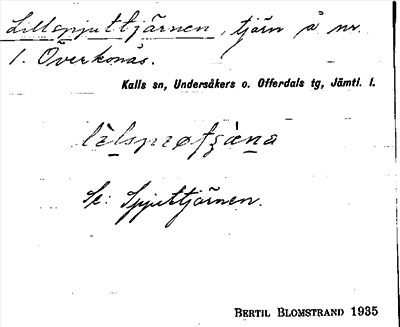 Lillspjuttjärnen, tjärn å nr.
1. Överkonäs.
Kalls sn, Undersåkers o. Offerdals tg, Jämtl. l.
Se: Spjuttjärnen.
BERTIL BLOMSTRAND 1935